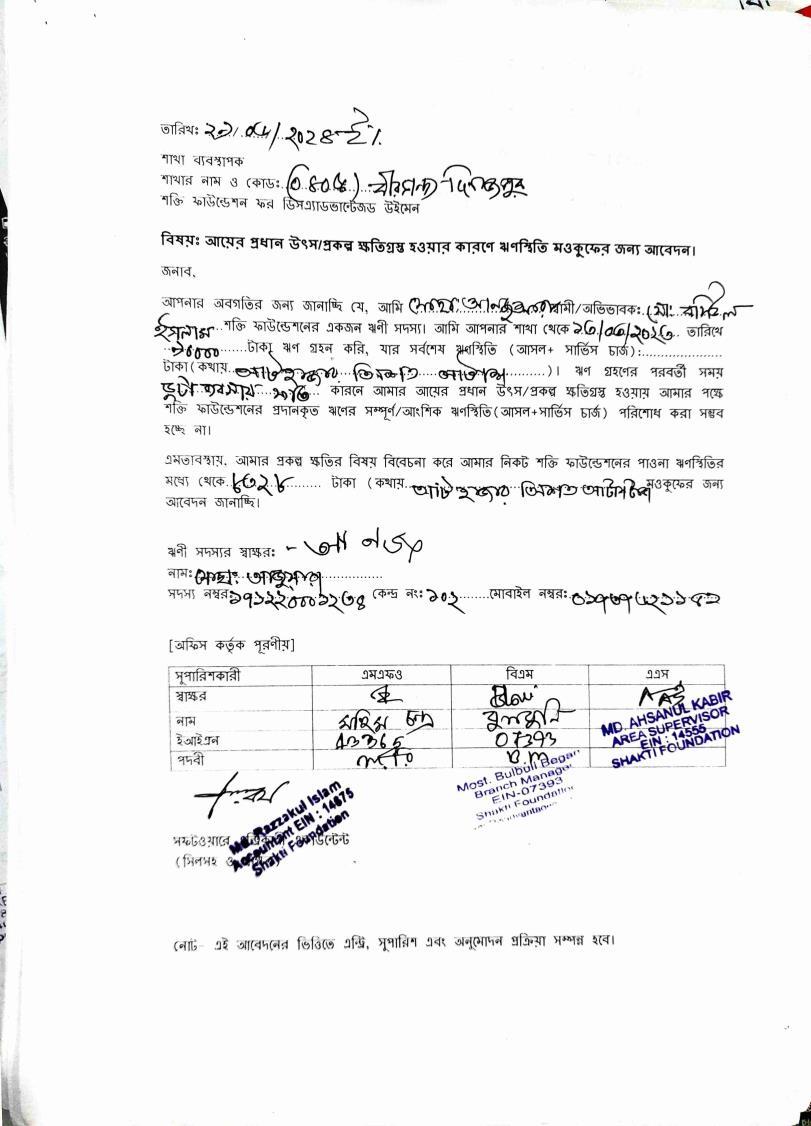 তারিখঃ ২৯/০৮/২০২৪ ইং
শাখা ব্যবস্থাপক
শাখার নাম ও কোডঃ (০৪০৫) বীরগঞ্জ দিনাজপুর
শক্তি ফাউন্ডেশন ফর ডিসএ্যাডভান্টেজড উইমেন
বিষয়ঃ আয়ের প্রধান উৎস/প্রকল্প ক্ষতিগ্রস্থ হওয়ার কারণে ঋণস্থিতি মওকুফের জন্য আবেদন।
জনাব,
আপনার অবগতির জন্য জানাচ্ছি যে, আমি স্বামী/অভিভাবকঃ মোঃ
ইসলাম শক্তি ফাউন্ডেশনের একজন ঋণী সদস্য। আমি আপনার শাখা থেকে তারিখে
টাকা ঋণ গ্রহন করি, যার সর্বশেষ ঋণস্থিতি (আসল+ সার্ভিস চার্জ)ঃ....................
টাকা(কথায় আট হাজার তিনশত আটাশ)। ঋণ গ্রহণের পরবর্তী সময়
ভুট্টা ব্যবসায় ক্ষতি কারনে আমার আয়ের প্রধান উৎস/প্রকল্প ক্ষতিগ্রস্থ হওয়ায় আমার পক্ষে
শক্তি ফাউন্ডেশনের প্রদানকৃত ঋণের সম্পূর্ণ/আংশিক ঋণস্থিতি(আসল+সার্ভিস চার্জ) পরিশোধ করা সম্ভব
হচ্ছে না।
এমতাবস্থায়, আমার প্রকল্প ক্ষতির বিষয় বিবেচনা করে আমার নিকট শক্তি ফাউন্ডেশনের পাওনা ঋণস্থিতির
মধ্যে থেকে ৮৩২৮ টাকা (কথায় আট হাজার তিনশত আটাশ মওকুফের জন্য
আবেদন জানাচ্ছি।
ঋণী সদস্যর স্বাক্ষরঃ -
নামঃ মোছাঃ
সদস্য নম্বরঃ কেন্দ্র নংঃ ১০২ মোবাইল নম্বরঃ
[অফিস কর্তৃক পূরণীয়]
সুপারিশকারী এমএফও বিএম এএস
স্বাক্ষর
নাম মহিম চন্দ্র বুলবুলি MD. AHSANUL KABIR
AREA SUPERVISOR
ইআইএন 43365 07393 EIN : 14555
পদবী B.M SHAKTI FOUNDATION
Most. Bulbuli Begam
Branch Manager
EIN-07393
Shakti Foundation
Md. Razzakul Islam
Accountant EIN : 14675
Shakti Foundation
সফটওয়ারে
(সিলসহ
নোট- এই আবেদনের ভিত্তিতে এন্ট্রি, সুপারিশ এবং অনুমোদন প্রক্রিয়া সম্পন্ন হবে।